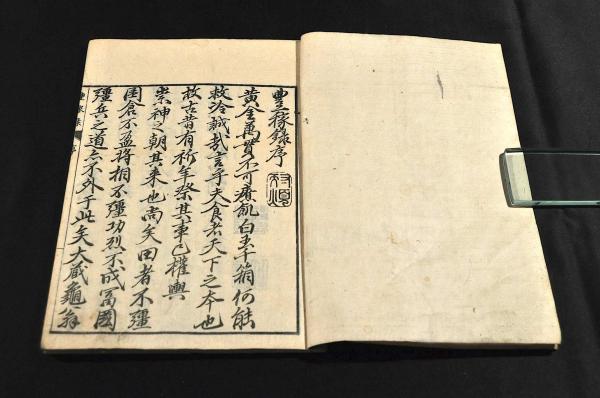 豊稼録序
黄金萬貫不可療飢白玉千箱何能
救冷誠哉言乎夫食者天下之本也
故古昔有祈年祭其事已權輿
崇神之朝其来也尚矣田者不彊
囷倉不盈将相不彊功烈不成冨國
彊兵之道亦不外于此矣大蔵龜翁